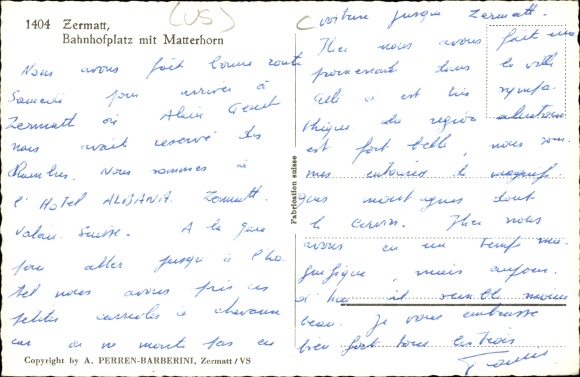 1404 Zermatt, (VS)
Bahnhofplatz mit Matterhorn
Nous avons fait bonne route
Samedi pour arriver à
Zermatt où Alain Genet
nous avait reservé des
chambres. Nous sommes à
l'Hotel ALBANA Zermatt.
Valais. Suisse. A la gare
pour aller jusqu'à l'ho
tel nous avons pris ces
petites carrioles à chevaux
car on ne monte pas en
Copyright by A. PERREN-BARBERINI, Zermatt/VS
Fabrication suisse
voiture jusque Zermatt.
Hier nous avons fait une
promenade dans la ville
elle est très sympa-
thique, la région
est fort belle, nous som-
mes entourés de magnifi-
ques montagnes dont
le Cervin. Hier nous
avons eu un temps ma-
gnifique, mais aujour-
d'hui il semble moins
beau. Je vous embrasse
bien fort tous les trois